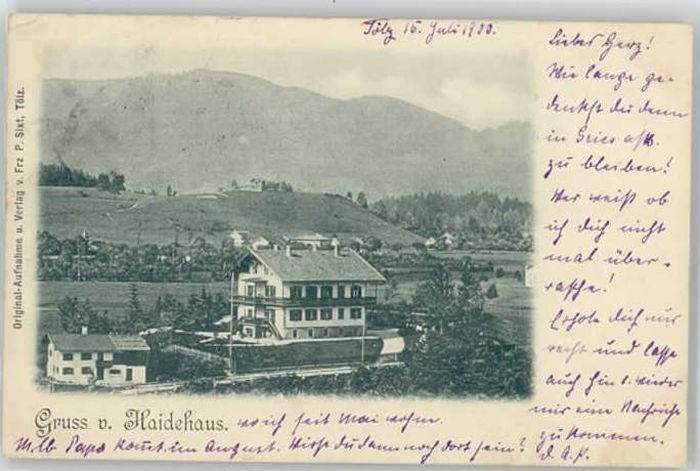 Tölz 15. Juli 1900.
Liebes Herz!
Wie lange ge-
denkst du denn
in Gries
zu bleiben!
Wer weiß ob
ich dich nicht
mal über-
rasche!
Erhole dich nur
recht und lasse
auch hin u. wieder
mir eine Nachricht
zu kommen.
Original-Aufnahme u. Verlag v. Frz P. Sixt, Tölz.
Gruss v. Haidehaus. wo ich seit Mai wohne.
M. lb. Papa kommt im August. Wirst du dann noch dort sein?